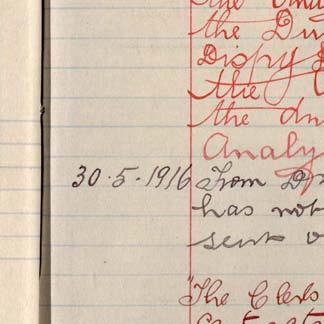 the
the D
Dispy
the
the d
Analy
30·5·1916 From D
has not
sent o
"The Clerk